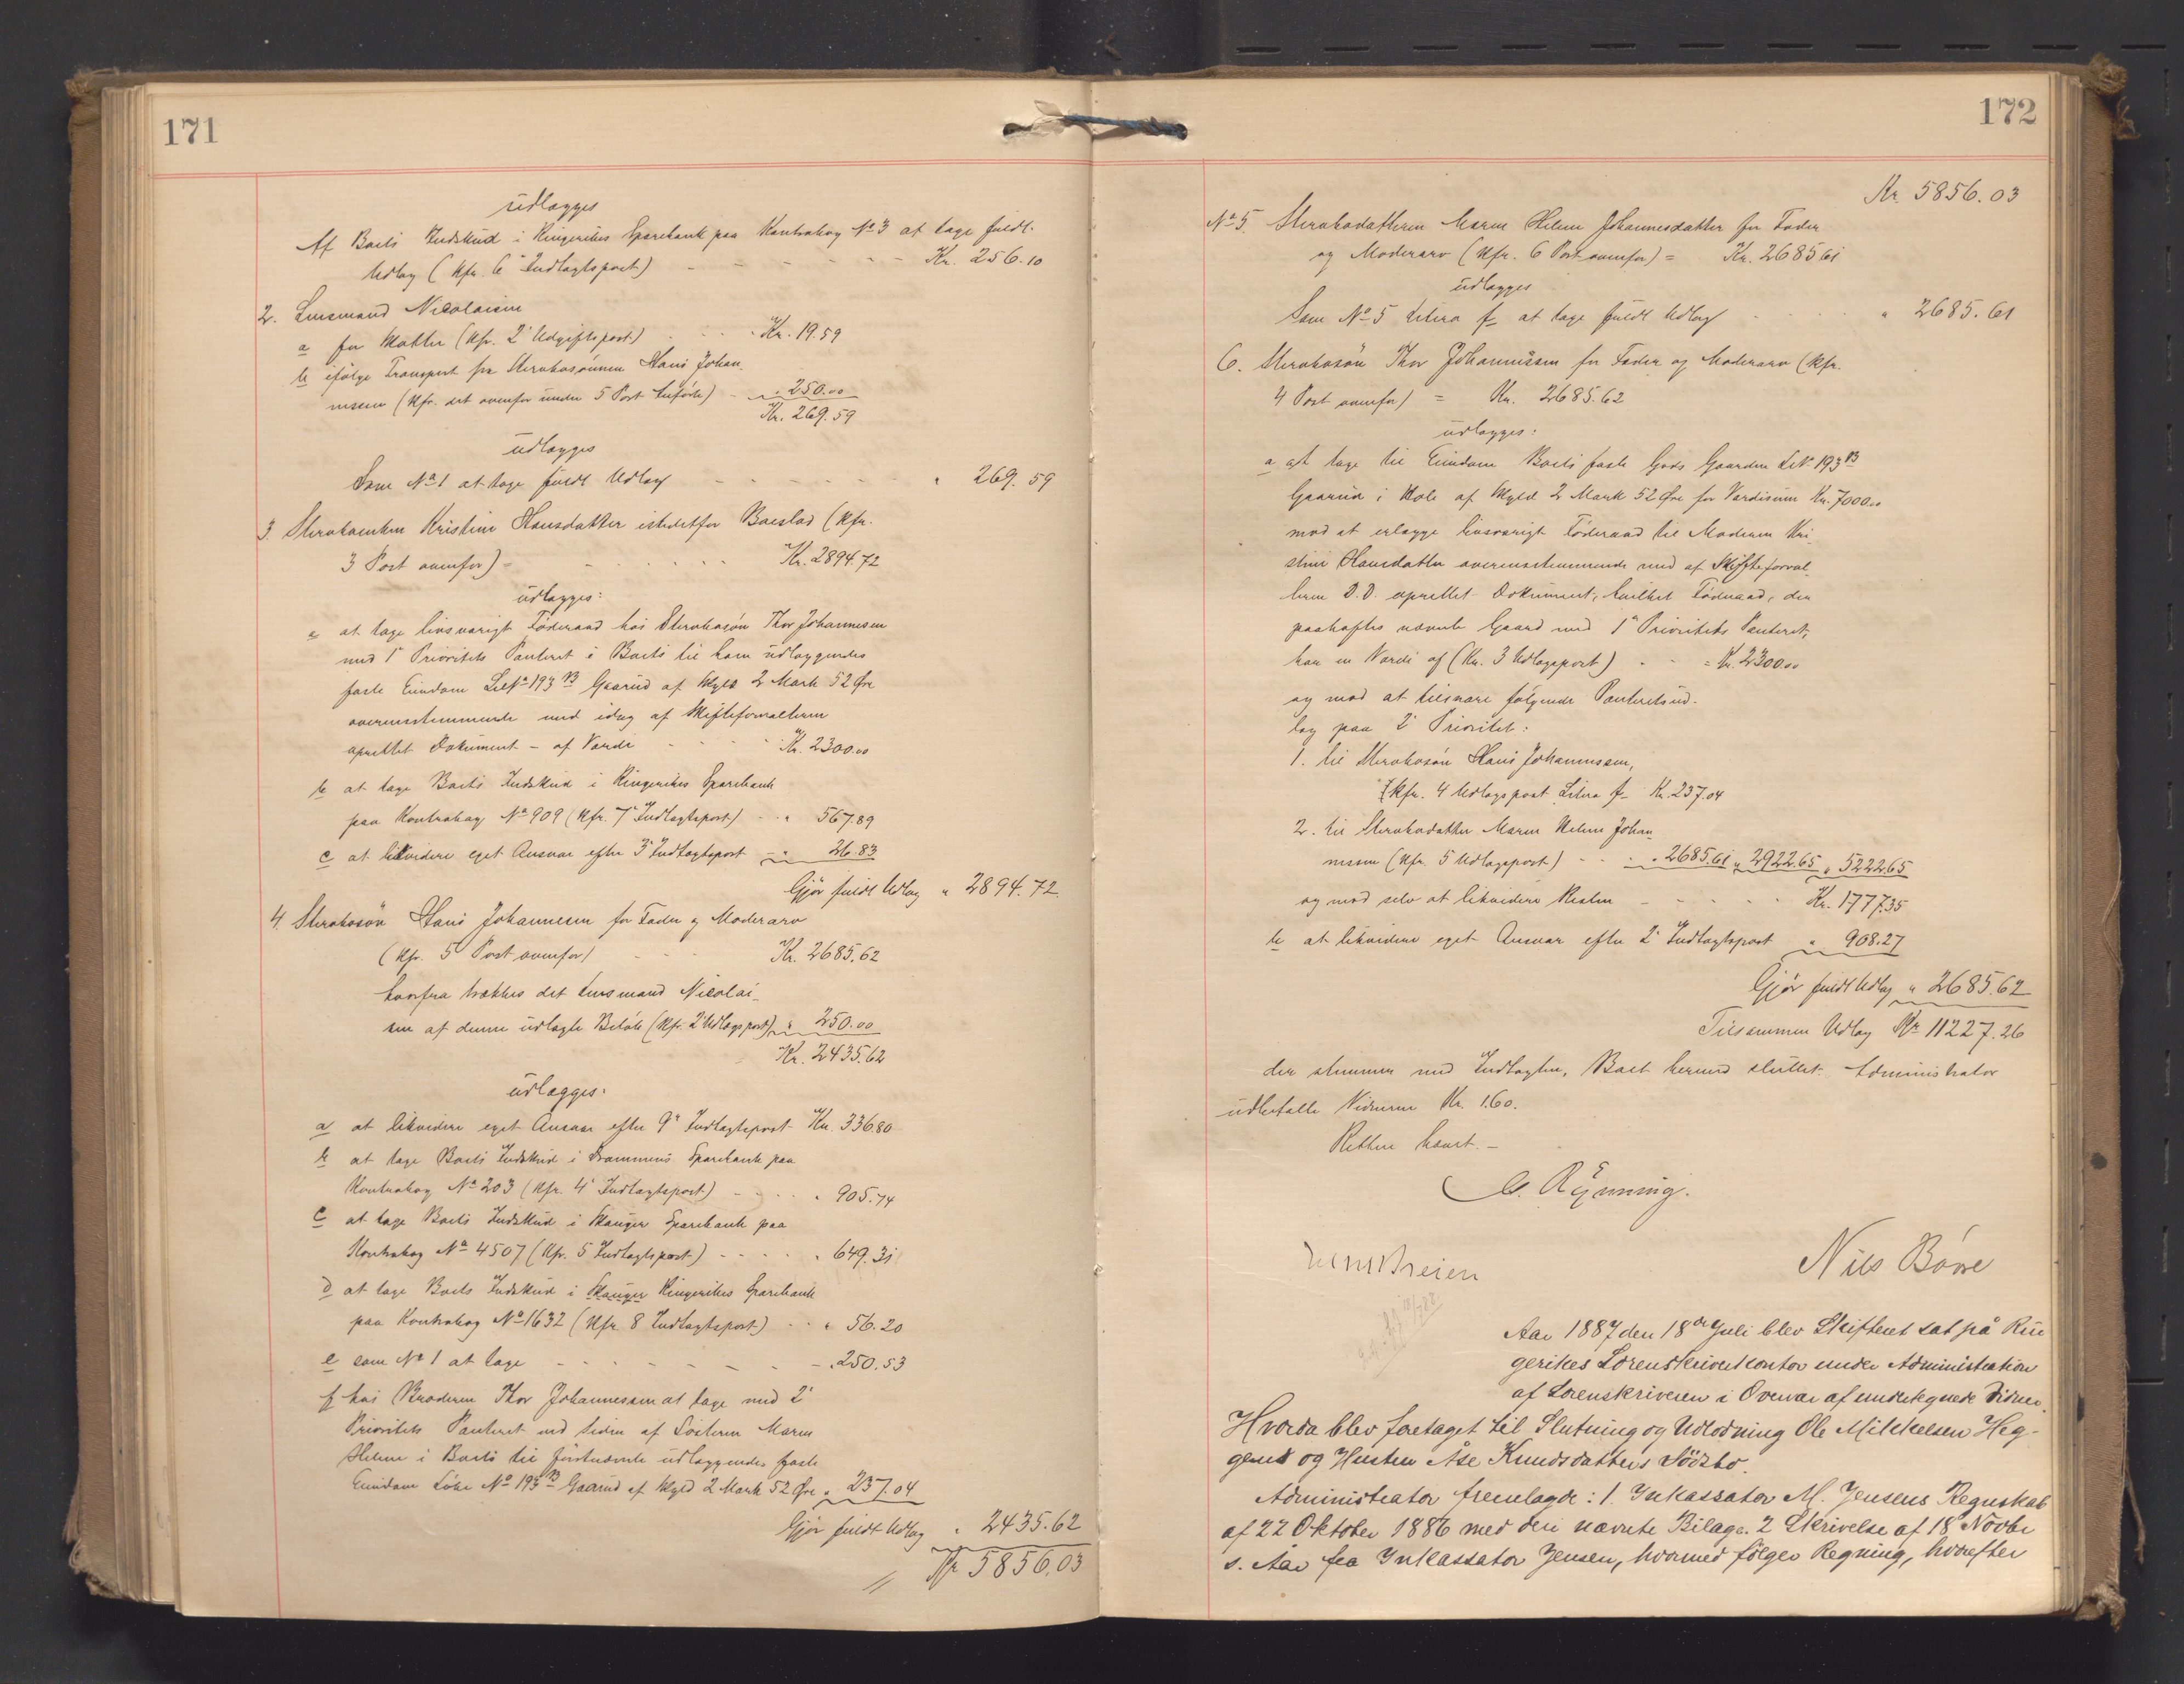 171
udlægges
Af Boets Indskud i Ringerikes Sparebank paa Kontrabog No 3 at tage fuldt
Udlag (Kfr. 6te Indtægtspost) - - - - - Kr. 256.10
2. Lensmand Nicolaisen
a for Skatter (Kfr. 2. Udgiftspost) . . . Kr. 19.59
b ifølge Transport fra Stervbosønnen Hans Johan-
nessen (Kfr. det ovenfor under 5 Post anførte) - " 250.00
Kr. 269.59
udlægges
Som No 1 at tage fuldt Udlæg - - - - - " 269.59
3. Stervboenken Kristine Hansdatter istedetfor Boeslod (Kfr.
3 Post ovenfor) - - . . . . Kr. 2894.72
udlægges:
a at tage livsvarigt Föderaad hos Stervbosøn Thor Johannesen
med 1ste Prioritets Panteret i Boets til ham udlæggendes
faste Eiendom LNo 193 B Gaarud af Skyld 2 Mark 52 Øre
overensstemmende med idag af Skifteforvalteren
oprettet Dokument - af Værdi - - - Kr. 2300.00
b at tage Boets Indskud i Ringerikes Sparebank
paa Kontrabog No 909 (Kfr. 7de Indtægtspost) - - " 567.89
c at likvidere eget Ansvar efter 3die Indtægtspost - " 26.83
Gjør fuldt Udlæg " 2894.72.
4. Stervbosøn Hans Johannesen for Fader og Moderarv
(Kfr. 5 Post ovenfor) - - - Kr. 2685.62
hvorfra trækkes det Lensmand Nicolai-
sen af denne udlagte Beløb (Kfr. 2 Udlægspost) " 250.00
Kr. 2435.62
udlægges:
a at likvidere eget Ansvar efter 9de Indtægtspost Kr. 336.80
b at tage Boets Indskud i Drammens Sparebank paa
Kontrabog No 203 (Kfr. 4de Indtægtspost) - - - - " 905.74
c at tage Boets Indskud i Skauger Sparebank paa
Kontrabog No 4507 (Kfr. 5 Indtægtspost) - - - - " 649.31
d at tage Boets Indskud i Skauger Ringerikes Sparebank
paa Kontrabog No 1632 (Kfr 8 Indtægtspost) - - " 56.20
e som No 1 at tage - - - - - - - - " 250.53
f hos Broderen Thor Johannessen at tage med 2.
Prioritets Panteret ved Siden af Søsteren Maren
Helene i Boets til førstnævnte udlæggendes faste
Eiendom Løbe No 193 B Gaarud af Skyld 2 Mark 52 Øre " 237.04
Gjør fuldt Udlæg " 2435.62
Kr 5856.03
172
Kr. 5856.03
No 5. Stervbodatteren Maren Helene Johannesdatter for Fader
og Moderarv (Kfr. 6 Post ovenfor) = Kr. 2685.61
udlægges
Som No 5 Litra f at tage fuldt Udlæg - - - - " 2685.61
6. Stervbosøn Thor Johannessen for Fader og Moderarv (Kfr.
4 Post ovenfor) = Kr. 2685.62
udlægges:
a at tage til Eiendom Boets faste Gods Gaarden LNo 193 B
Gaarud i Hole af Skyld 2 Mark 52 Øre for Værdisum Kr. 7000.00
mod at erlægge livsvarigt Föderaad til Moderen Kri-
stine Hansdatter overensstemmende med af Skifteforval-
teren D.D. oprettet Dokument, hvilket Föderaad, der
paahæftes nævnte Gaard med 1ste Prioritets Panteret,
har en Værdi af (Kr. 3 Udlægspost) - - = Kr. 2300.00
og mod at tilsvare følgende Panteretsud-
læg paa 2. Prioritet:
1. til Stervbosøn Hans Johannessen,
(Kfr. 4 Udlægspost Litra f - Kr. 237.04
2. til Stervbodatter Maren Helene Johan-
nessen (Kfr. 5 Udlægspost) - - - " 2685.61 " 2922.65 " 5222.65
og mod selv at likvidere Resten - - - - - Kr. 1777.35
b at likvidere eget Ansvar efter 2. Indtægtspost " 908.27
Gjør fuldt Udlæg " 2685.62
Tilsammen Udlæg Kr 11227.26
der stemmer med Indtægten, Boet hermed sluttet. Administrator
udbetalte Vidnerne Kr. 1.60.
Retten hævet. -
C. Rynning.
Nils Børre
Aar 1887 den 18de Juli blev Skifteret sat på Rin
gerikes Sorenskriverkontor under Administration
af Sorenskriveren i Overvær af undertegnede Vidner.
Hvorda blev foretaget til Slutning og Udlodning Ole Mikkelsen Heg-
genes og Hustru Åse Knudsdatters Södsbo.
Administrator fremlagde: 1. Inkassator M. Jensens Regnskab
af 22 Oktober 1886 med deri nævnte Bilage. 2 Skrivelse af 18 Novbr
s. Aar fra Inkassator Jensen, hvormed følger Regning, hvorefter